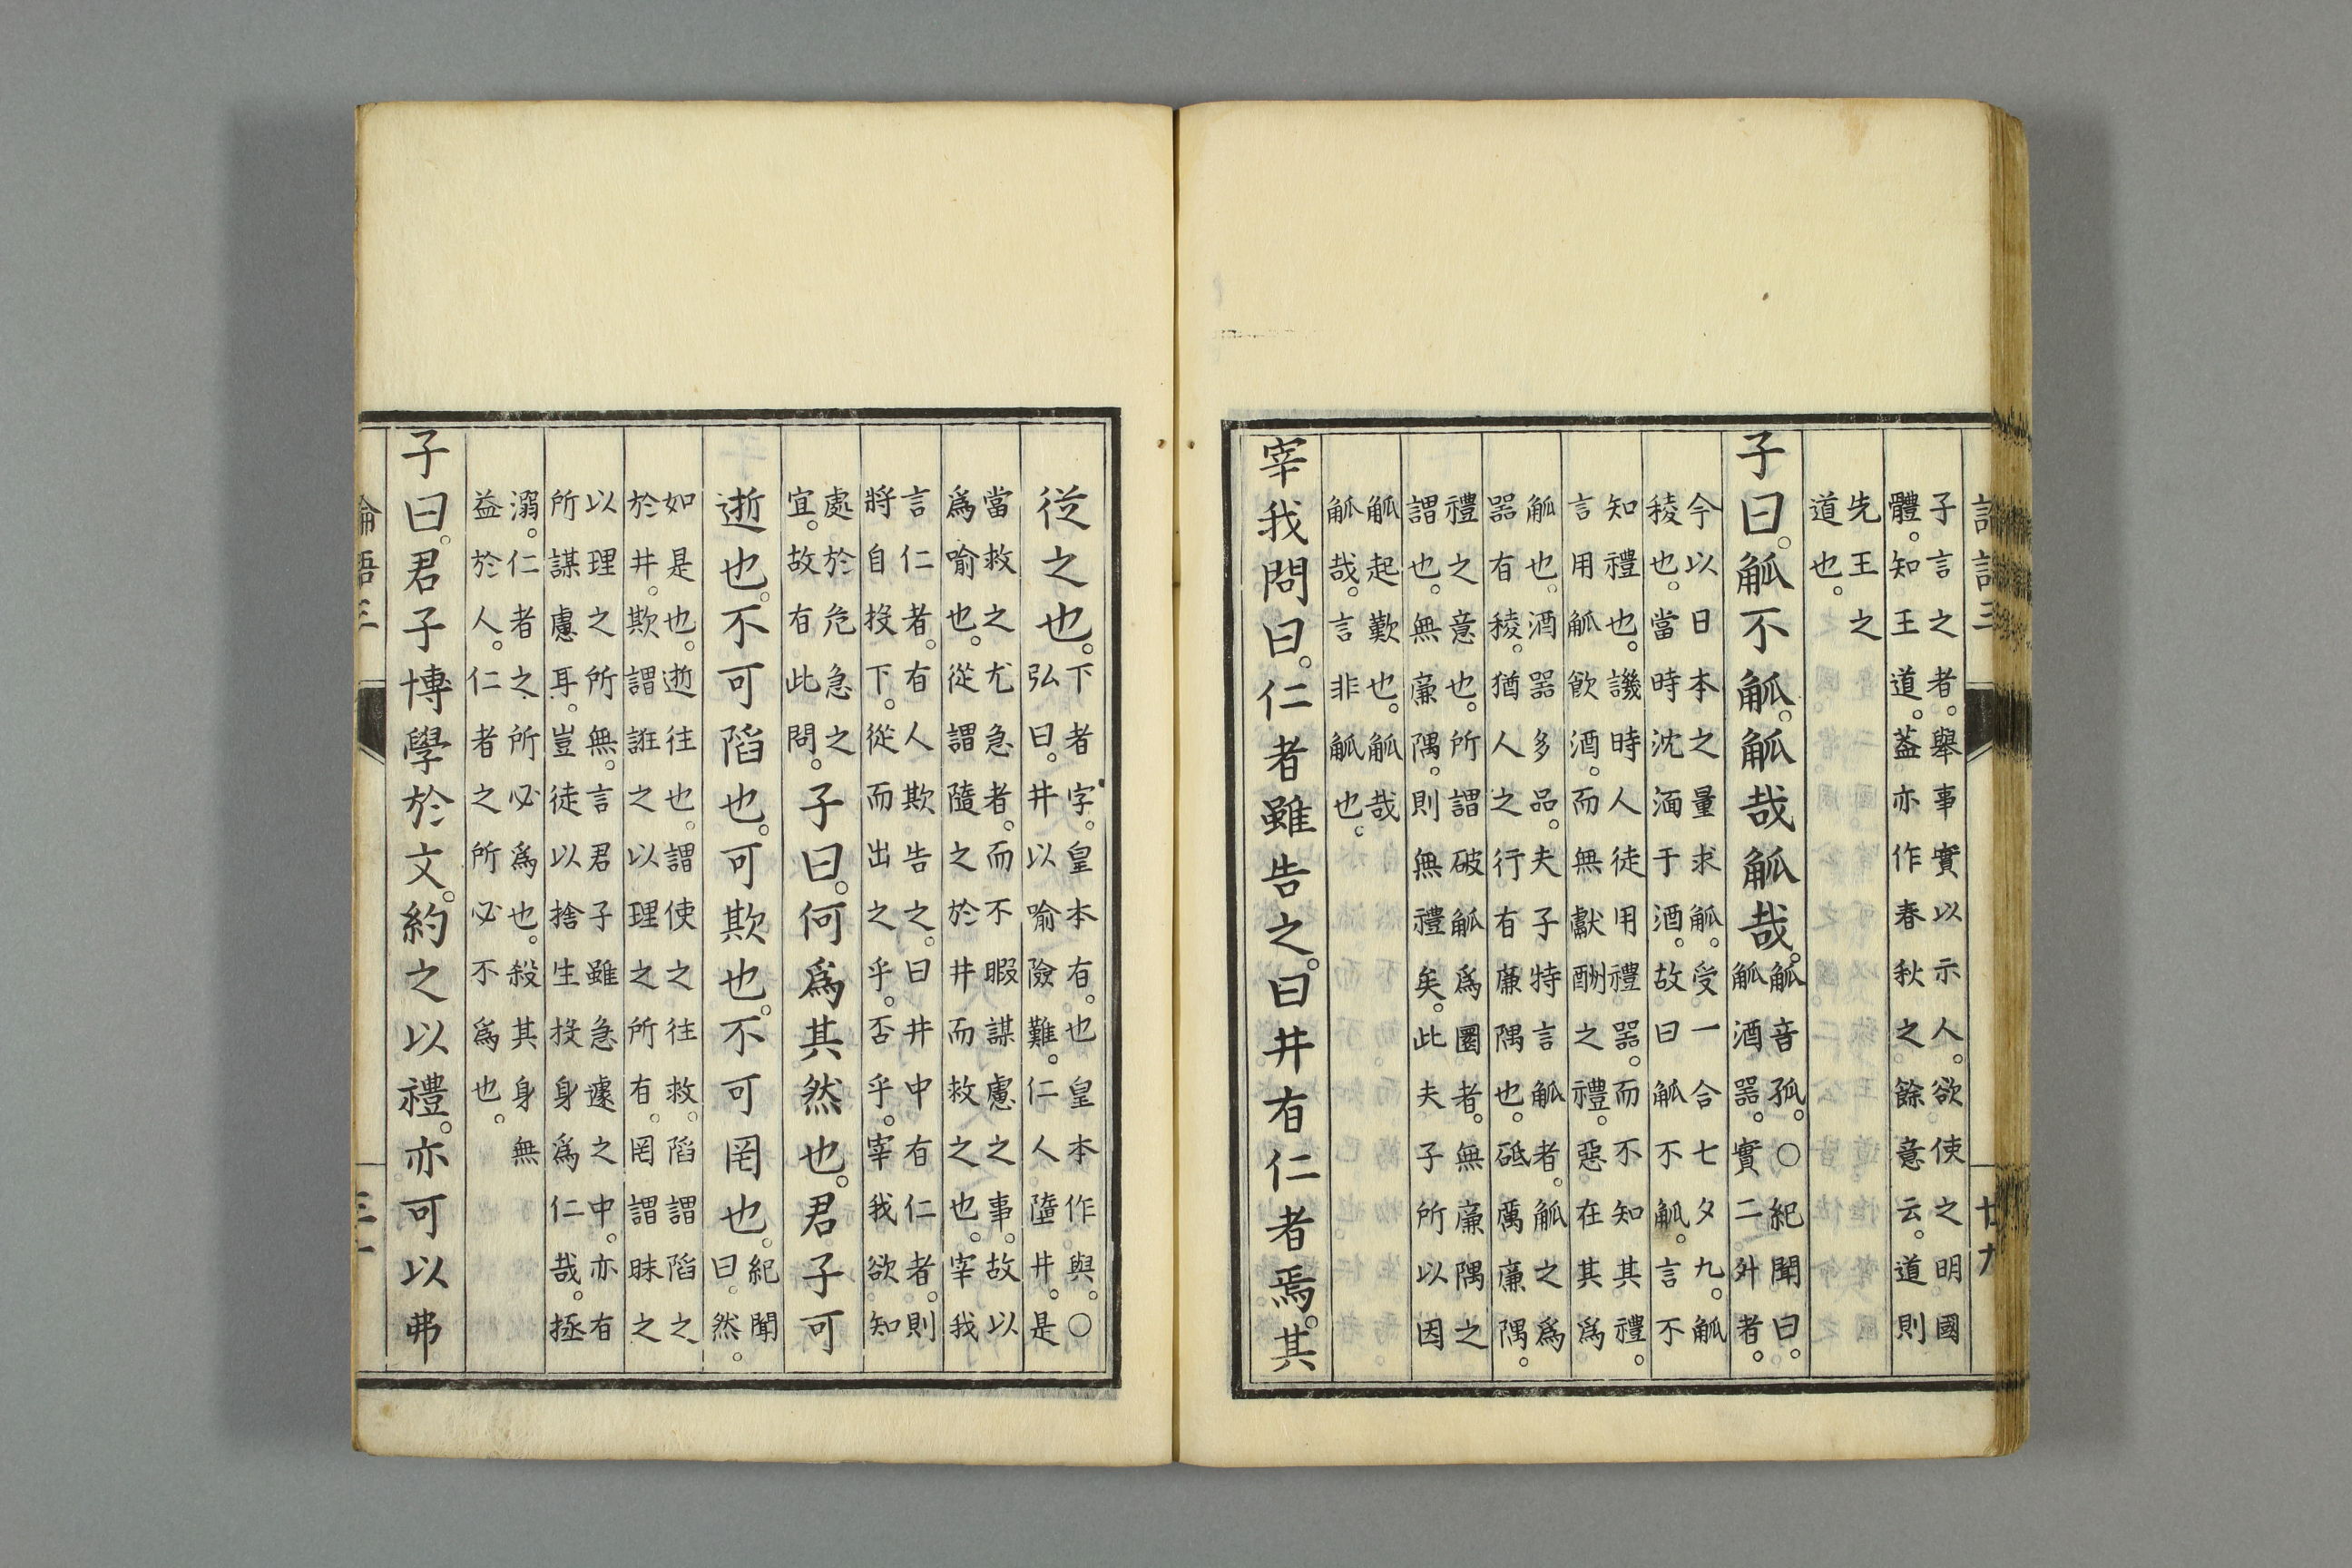 子言之者。舉事實以示人。欲使之明國
體。知王道。蓋亦作春秋之餘意云。道則
先王之
道也。
子曰。觚不觚。觚哉觚哉。
觚音孤。○紀聞曰。
觚酒器。實二升者。
今以日本之量求觚。受一合七夕九。觚
稜也。當時沈湎于酒。故曰觚不觚。言不
知禮也。譏時人徒用禮器。而不知其禮。
言用觚飲酒。而無獻酬之禮。惡在其爲
觚也。酒器多品。夫子特言觚者。觚之爲
器有稜。猶人之行有廉隅也。砥厲廉隅。
禮之意也。所謂破觚爲圜者。無廉隅之
謂也。無廉隅。則無禮矣。此夫子所以因
觚起歎也。觚哉
觚哉。言非觚也。
宰我問曰。仁者雖告之。曰井有仁者焉。其
從之也。
下者字。皇本有。也皇本作與。○
弘曰。井以喻險難。仁人墮井。是
當救之尤急者。而不暇謀慮之事。故以
爲喻也。從謂隨之於井而救之也。宰我
言仁者。有人欺告之。曰井中有仁者。則
將自投下。從而出之乎。否乎。宰我欲知
處於危急之
宜。故有此問。
子曰。何爲其然也。君子可
逝也。不可陷也。可欺也。不可罔也。
紀聞
曰。然。
如是也。逝往也。謂使之往救。陷謂陷之
於井。欺謂誑之以理之所有。罔謂昧之
以理之所無。言君子雖急遽之中。亦有
所謀慮耳。豈徒以捨生投身爲仁哉。拯
溺。仁者之所必爲也。殺其身無
益於人。仁者之所必不爲也。
子曰。君子博學於文。約之以禮。亦可以弗